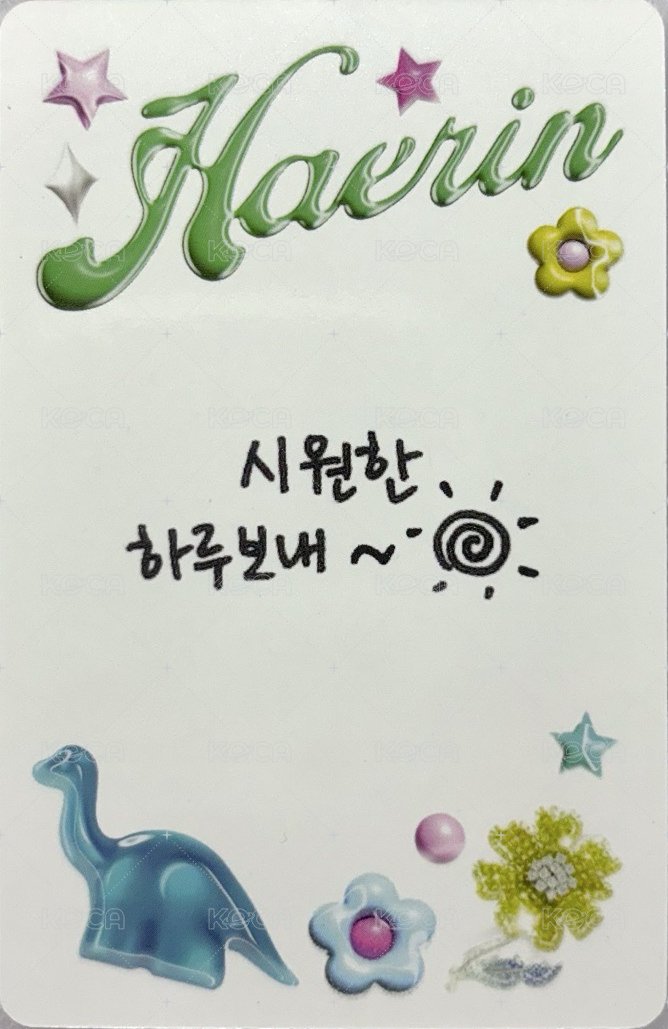 Haerin
시원한
하루보내 ~